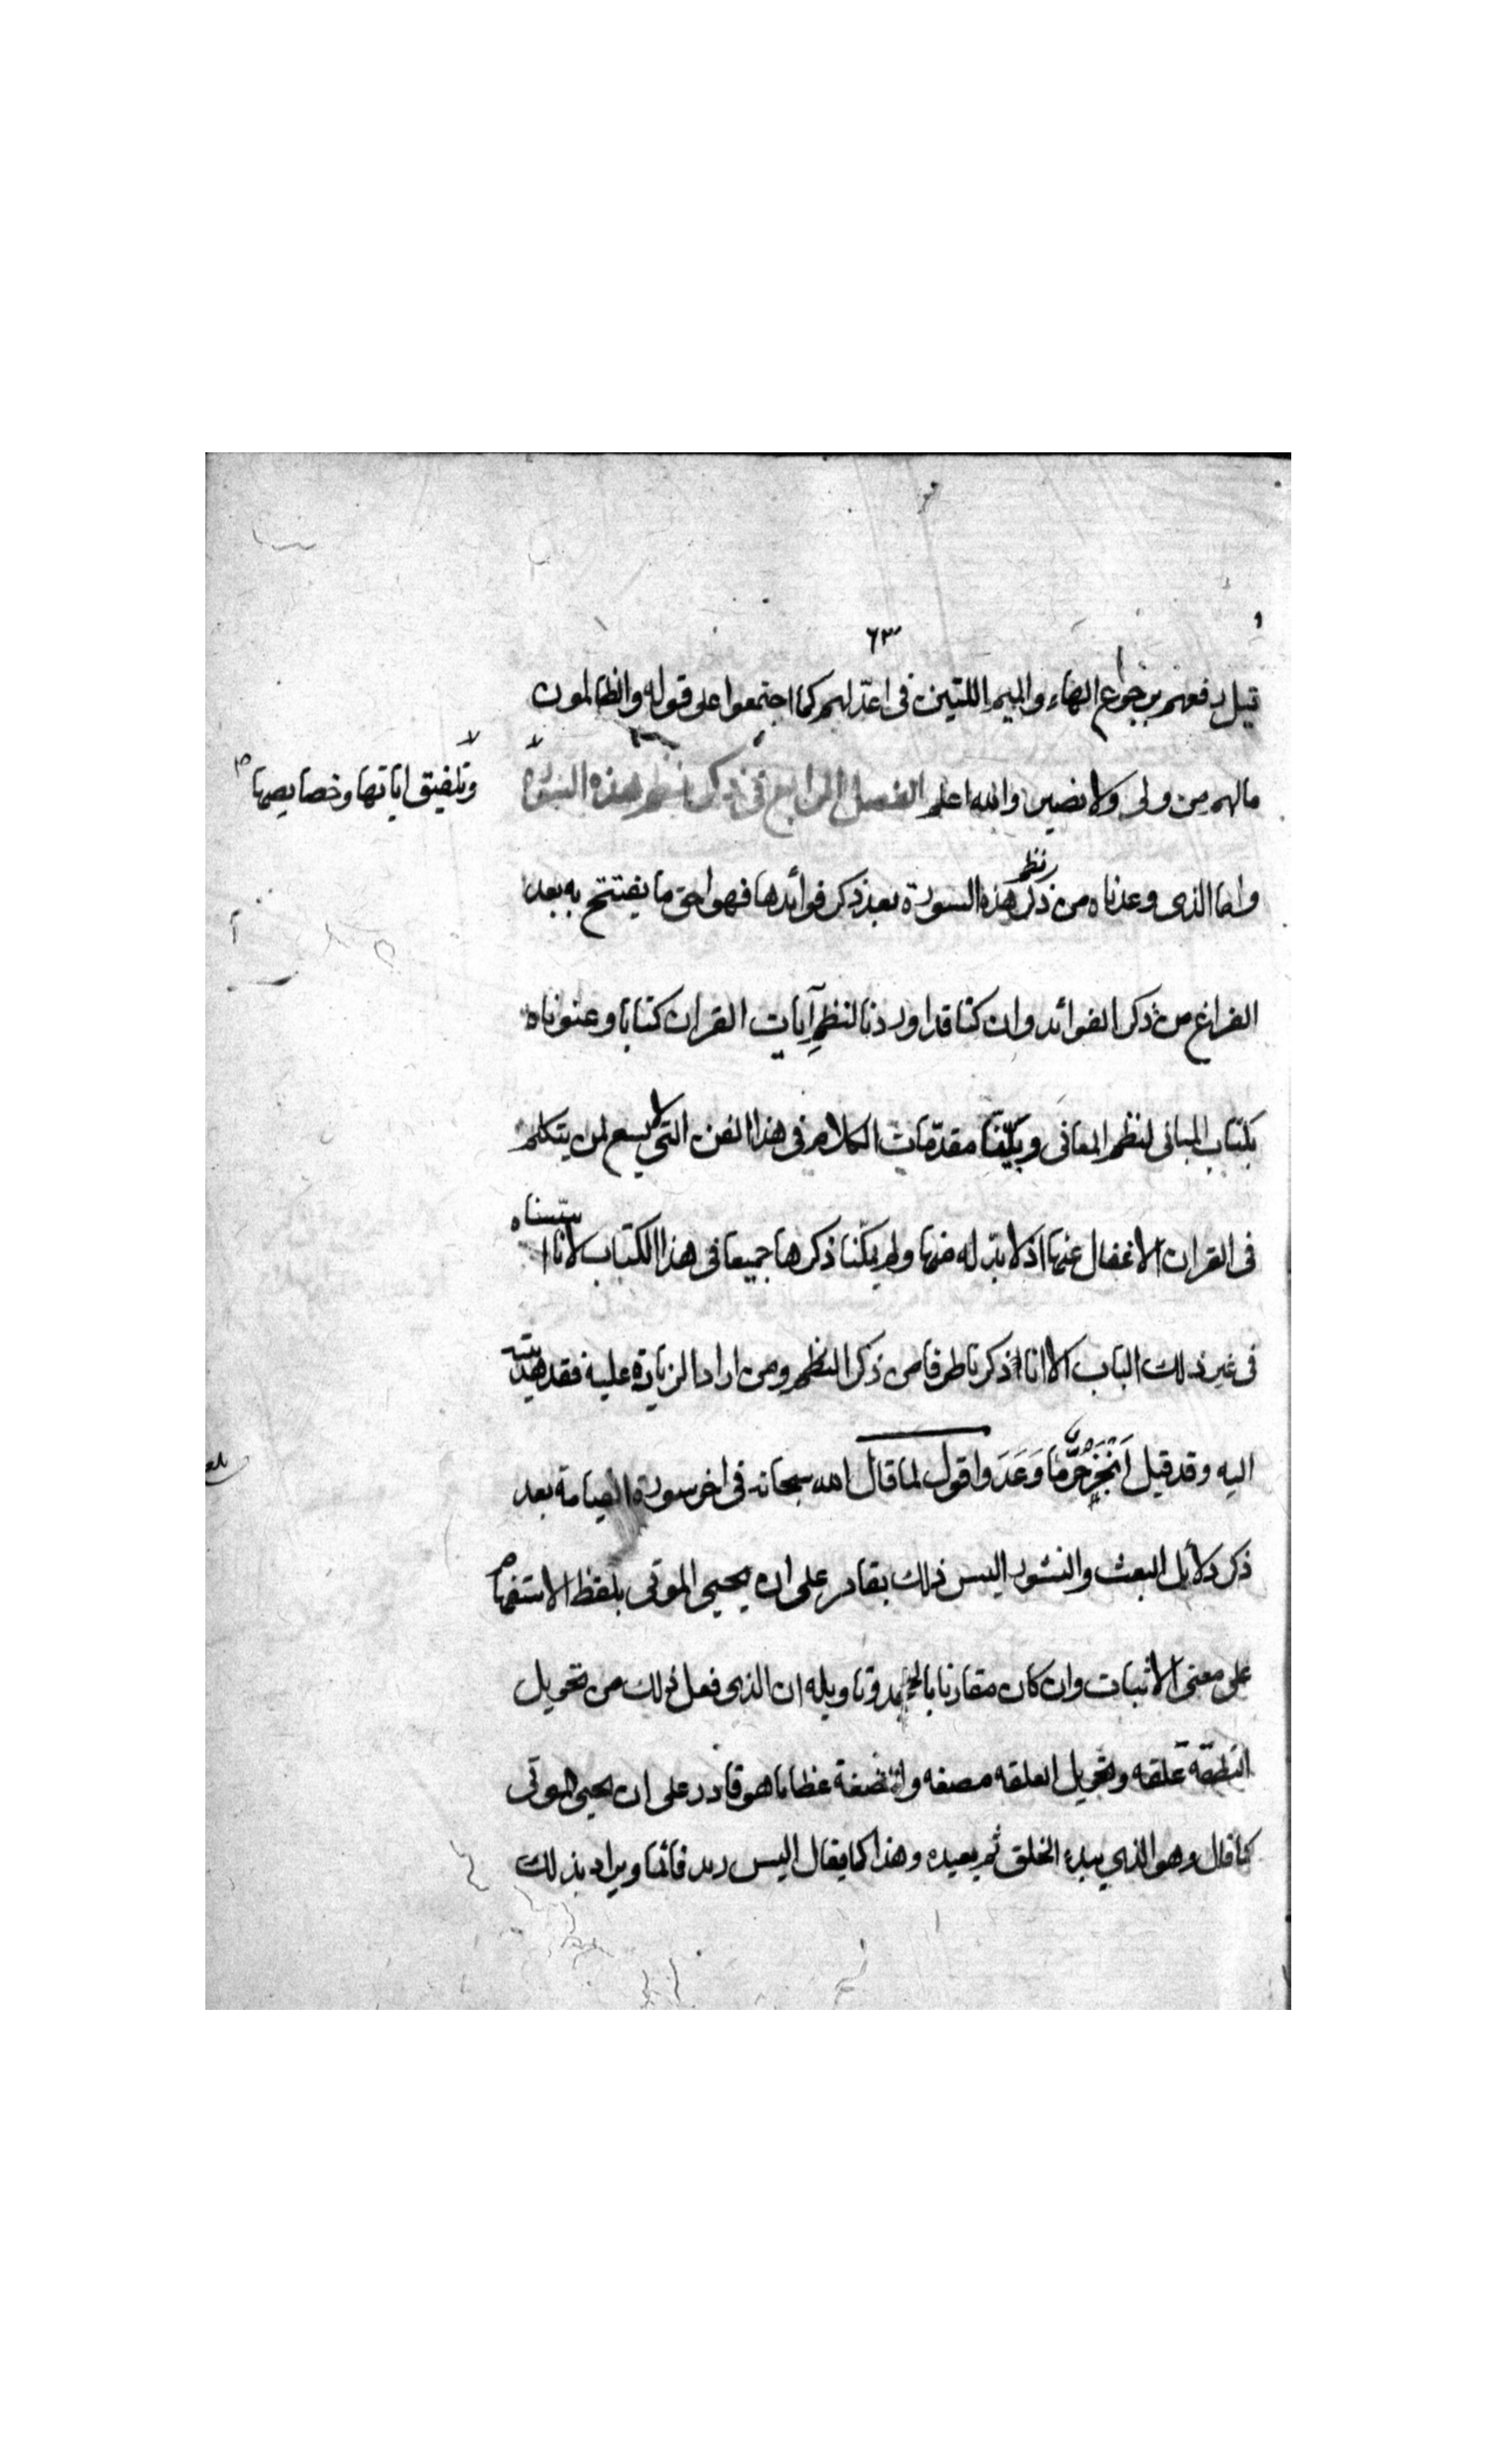 ٦٣
قيل رفعهم برجوع الهاء والميم اللتين في اعد لهم كما اجتمعوا على قوله والظالمون
مالهم من ولى ولا نصير والله اعلم الفصل الرابع في ذكر نظم هذه السورة
وتلفيق اياتها وخصايصها
واما الذى وعدناه من ذكر نظم هذه السورة بعد ذكر فوائدها فهو احق ما يفتتح به بعد
الفراغ من ذكر الفوائد وان كنا قد اوردنا لنظم آيات القران كتابا وعنوناه
بكتاب المبانى لنظم المعانى وبيّنا مقدّمات الكلام في هذا الفن التى لا يسع لمن يتكلم
فى القران الاغفال عنها اذ لا بدّ له منها ولم يمكنّا ذكرها جميعا فى هذا الكتاب لانا اسسناه
فى غير ذلك الباب الا انا اذكرنا طرفا من ذكر النظم ومن اراد الزيادة عليه فقد هديته
اليه وقد قيل اَنْجَزَ حُرٌّ مَا وَعَدَ واقول لما قال الله سبحانه فى اخر سورة القيامة بعد
ذكر دلايل البعث والنشور اليس ذلك بقادر على ان يحيي الموتى بلفظ الاستفهام
على معنى الاثبات وان كان مقارنا بالجحد وتاويله ان الذى فعل ذلك من تحويل
النطفة علقه وتحويل العلقه مضغه والمضغة عظاما هو قادر على ان يحيى الموتى
كما قال وهو الذي يبدء الخلق ثم يعيده وهذا كما يقال اليس زيد قائما ويراد بذلك